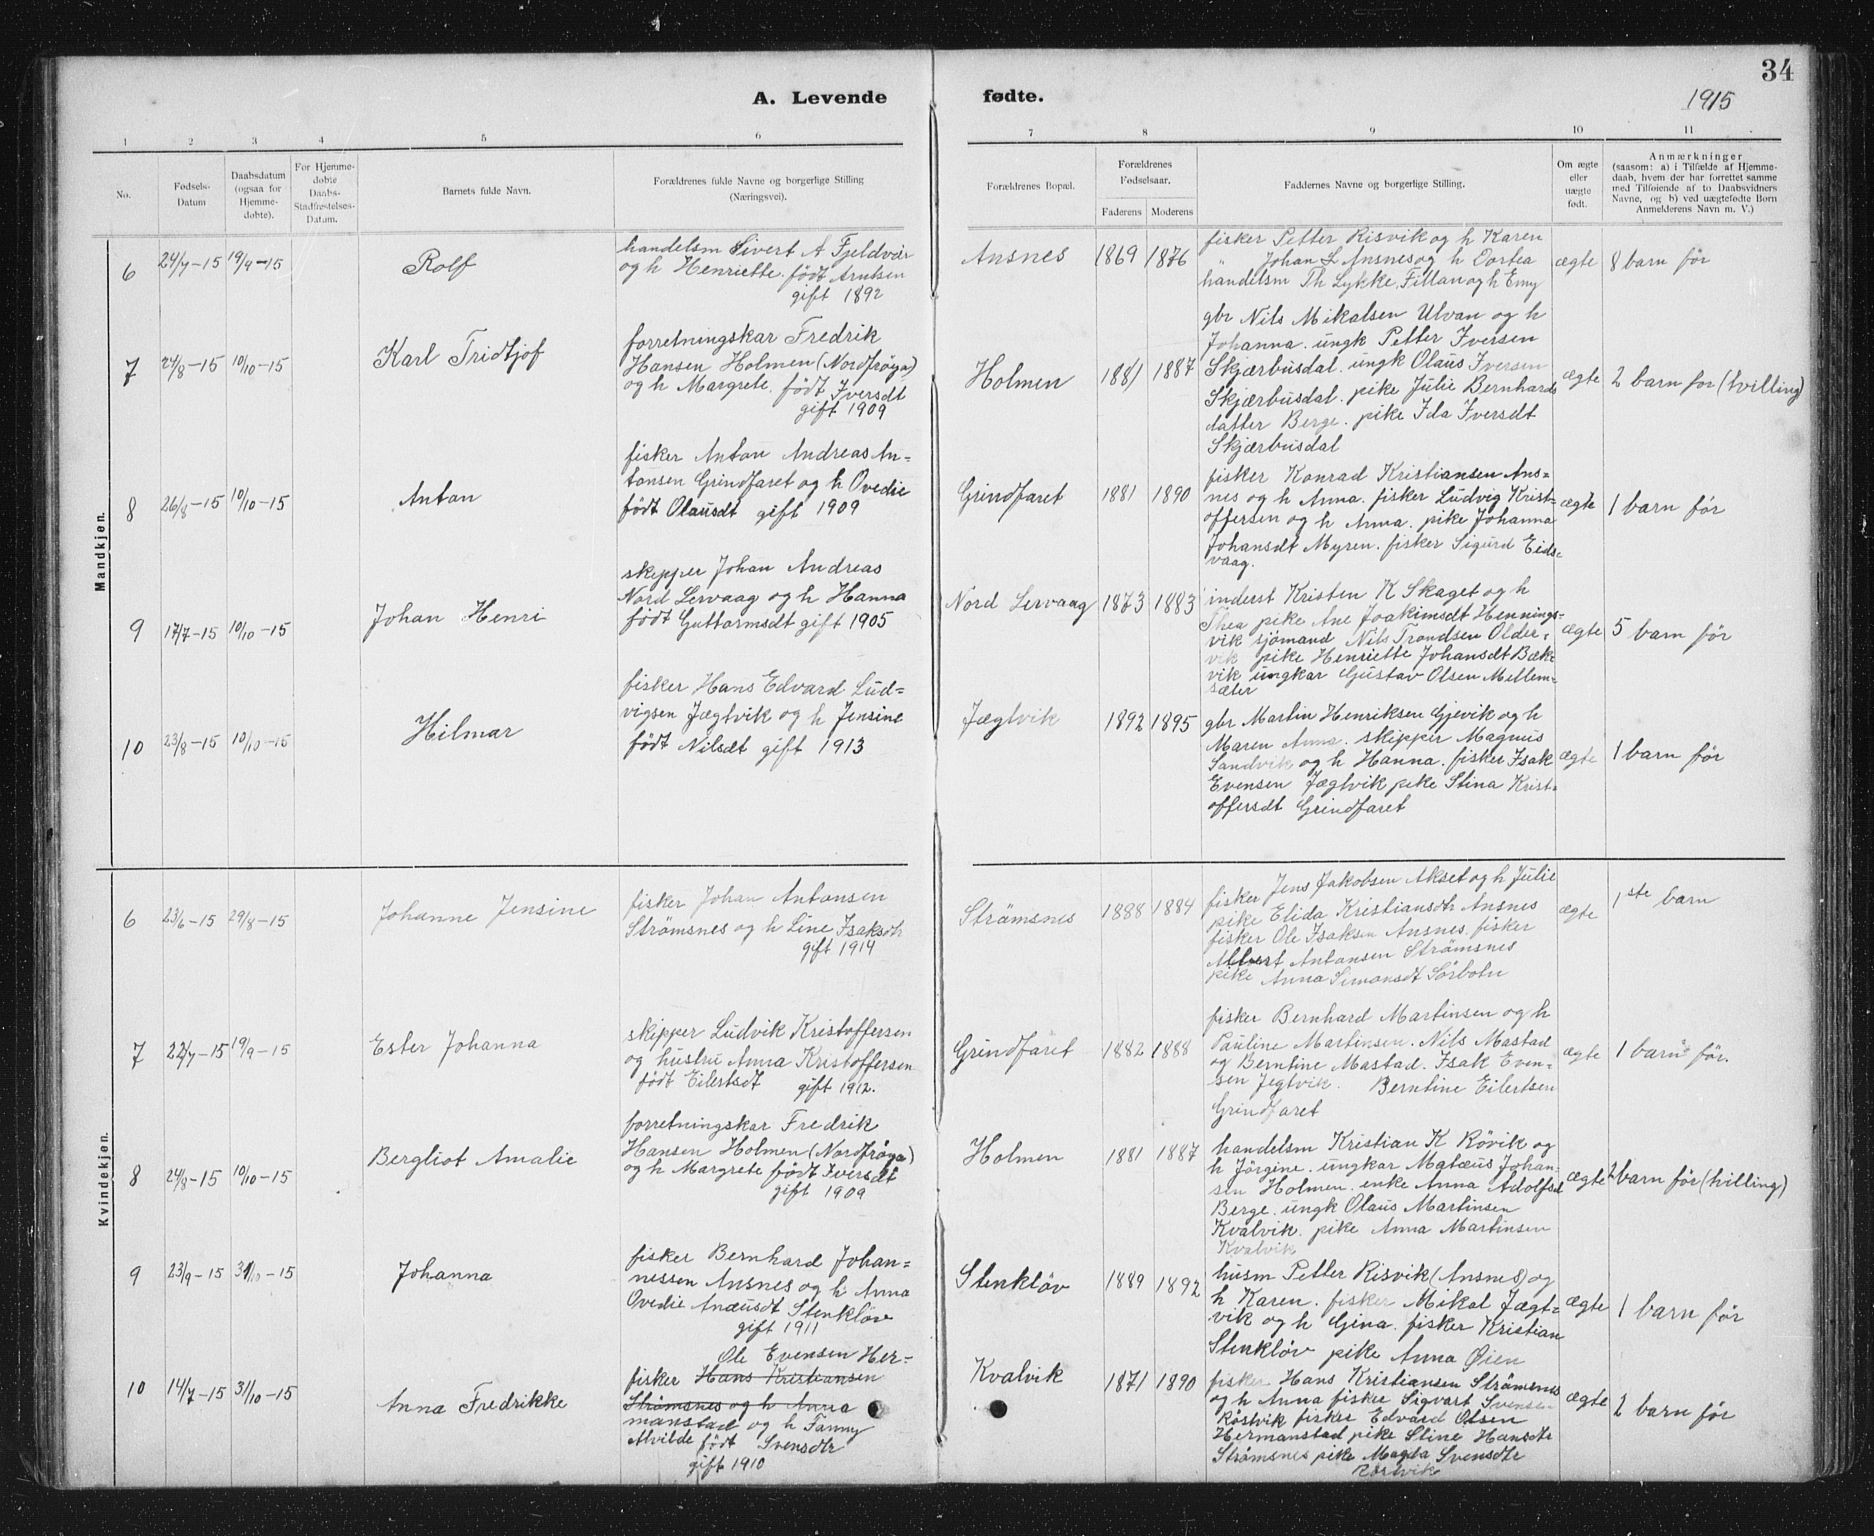 34
A. Levende fødte.
1915
1 2 3 4 5 6 7 8 9 10 11
No.
Fødsels-
Datum
Daabsdatum
(ogsaa for
Hjemme-
døbte).
For Hjemme-
døbte
Daabs-
Stadfæstelses-
Datum.
Barnets fulde Navn.
Forældrenes fulde Navne og borgerlige Stilling
(Næringsvei).
Forældrenes Bopæl.
Forældrenes
Fødselsaar.
Faderens Moderens
Faddernes Navne og borgerlige Stilling.
Om ægte
eller
uægte
født.
Anmærkninger
(saasom: a) i Tilfælde af Hjemme-
daab, hvem der har forrettet samme
med Tilføiende af to Daabsvidners
Navne, og b) ved uægtefødte Børn
Anmelderens Navn m. V.)
Mandkjøn.
6
19/9-15
Rolf
handelsm Sivert A Fjeldvær
og h Henriette født Arntsen
gift 1892
Ansnes
1869 1876
fisker Petter Risvik og h Karen
" Johan L Ansnes og h Dortea
handelsm Th Lykke, Fillan og h Emy
ægte
8 barn før
7
24/8-15
10/10-15
Karl Fridtjof
forretningskar Fredrik
Hansen Holmen (Nordfrøya)
og h Margrete født Iversdt
gift 1909
Holmen
1881 1887
gbr Nils Mikalsen Ulvan og h
Johanna. ungk Petter Iversen
Skjærbusdal. ungk Olaus Iversen
Skjærbusdal. pike Julie Bernhards
datter Berge. pike Ida Iversdt
Skjærbusdal
ægte
2 barn for (tvilling)
8
26/8-15
10/10-15
Anton
fisker Anton Andreas An=
tonsen Grindfaret og h Ovedie
født Olausdt gift 1909
Grindfaret
1881 1890
fisker Konrad Kristiansen Ans=
nes og h Anna. fisker Ludvig Krist-
offersen og h Anna. pike Johanna
Johansdt Myren. fisker Sigurd Eids=
vaag.
ægte
1 barn før
9
17/7-15
10/10-15
Johan Henri
skipper Johan Andreas
Nord Lervaag og h Hanna
født Guttormsdt gift 1905
Nord Lervaag
1873 1883
inderst Kristen K Skaget og h
Thea pike Ane Joakimsdt Hennings-
vik sjömand Nils Trondsen Older=
vik pike Henriette Johansdt Bæk=
vik ungkar Gustav Olsen Mellem=
sæter
ægte
5 barn før
10
23/8-15
10/10-15
Hilmar
fisker Hans Edvard Lud=
vigsen Jægtvik og h Jensine
født Nilsdt gift 1913
Jægtvik
1892 1895
gbr Martin Henriksen Gjevik og h
Maren Anna. skipper Magnus
Sandvik og h Hanna. fisker Isak
Evensen Jægtvik pike Stina Krist=
offersdt Grindfaret
ægte
1 barn før
Kvindekjøn.
6
23/6-15
29/8-15
Johanne Jensine
fisker Johan Antonsen
Strømsnes og h Line Isaksdt
gift 1914
Strømsnes
1888 1884
fisker Jens Jakobsen Akset og h Julie
pike Elida Kristiansdt Ansnes
fisker Ole Isaksen Ansnes. fisker
Albert Antonsen Strømsnes
pike Anna Simonsdt Sörbotn
ægte
1ste barn
7
19/9-15
Ester Johanna
skipper Ludvik Kristoffersen
og hustru Anna Kristoffersen
født Eilertsdt gift 1912.
Grindfaret
1882 1888
fisker Bernhard Martinsen og h
Pauline Martinsen. Nils Mastad
og Berntine Mastad. Isak Even=
sen Jegtvik. Berntine Eilertsen
Grindfaret
ægte
1 barn før.
8
24/8-15
10/10-15
Bergliot Amalie
forretningskar Fredrik
Hansen Holmen (Nordfrøya)
og h Margrete født Iversdt
gift 1909
Holmen
1881 1887
handelsm Kristian K Røvik og
h Jørgine. ungkar Matæus Johan=
sen Holmen. enke Anna Adolfsd
Berge. ungk Olaus Martinsen
Kvalvik. pike Anna Martinsen
Kvalvik
ægte
2 barn før (tvilling)
9
23/9-15
31/10-15
Johanna
fisker Bernhard Johan=
nessen Ansnes og h Anna
Ovedie Anæusdt Stenkløv
gift 1911
Stenkløv
1889 1892
husm Petter Risvik (Ansnes) og
h Karen. fisker Mikal Jægt=
vik og h Gina. fisker Kristian
Stenkløv pike Anna Øien
ægte
1 barn før
10
14/7-15
31/10-15
Anna Fredrikke
Ole Evensen Her=
fisker Hans Kristiansen
Strømsnes og h Anna
manstad og h Fanny
Alvilde født Svensdtr
gift 1910
Kvalvik
1871 1890
fisker Hans Kristiansen Strømsnes
og h Anna fisker Sigvart Svensen
Röstvik fisker Edvard Olsen
Hermanstad pike Stine Hansdtr
Strømsnes pike Magda Svensdtr
Röstvik
ægte
2 barn før